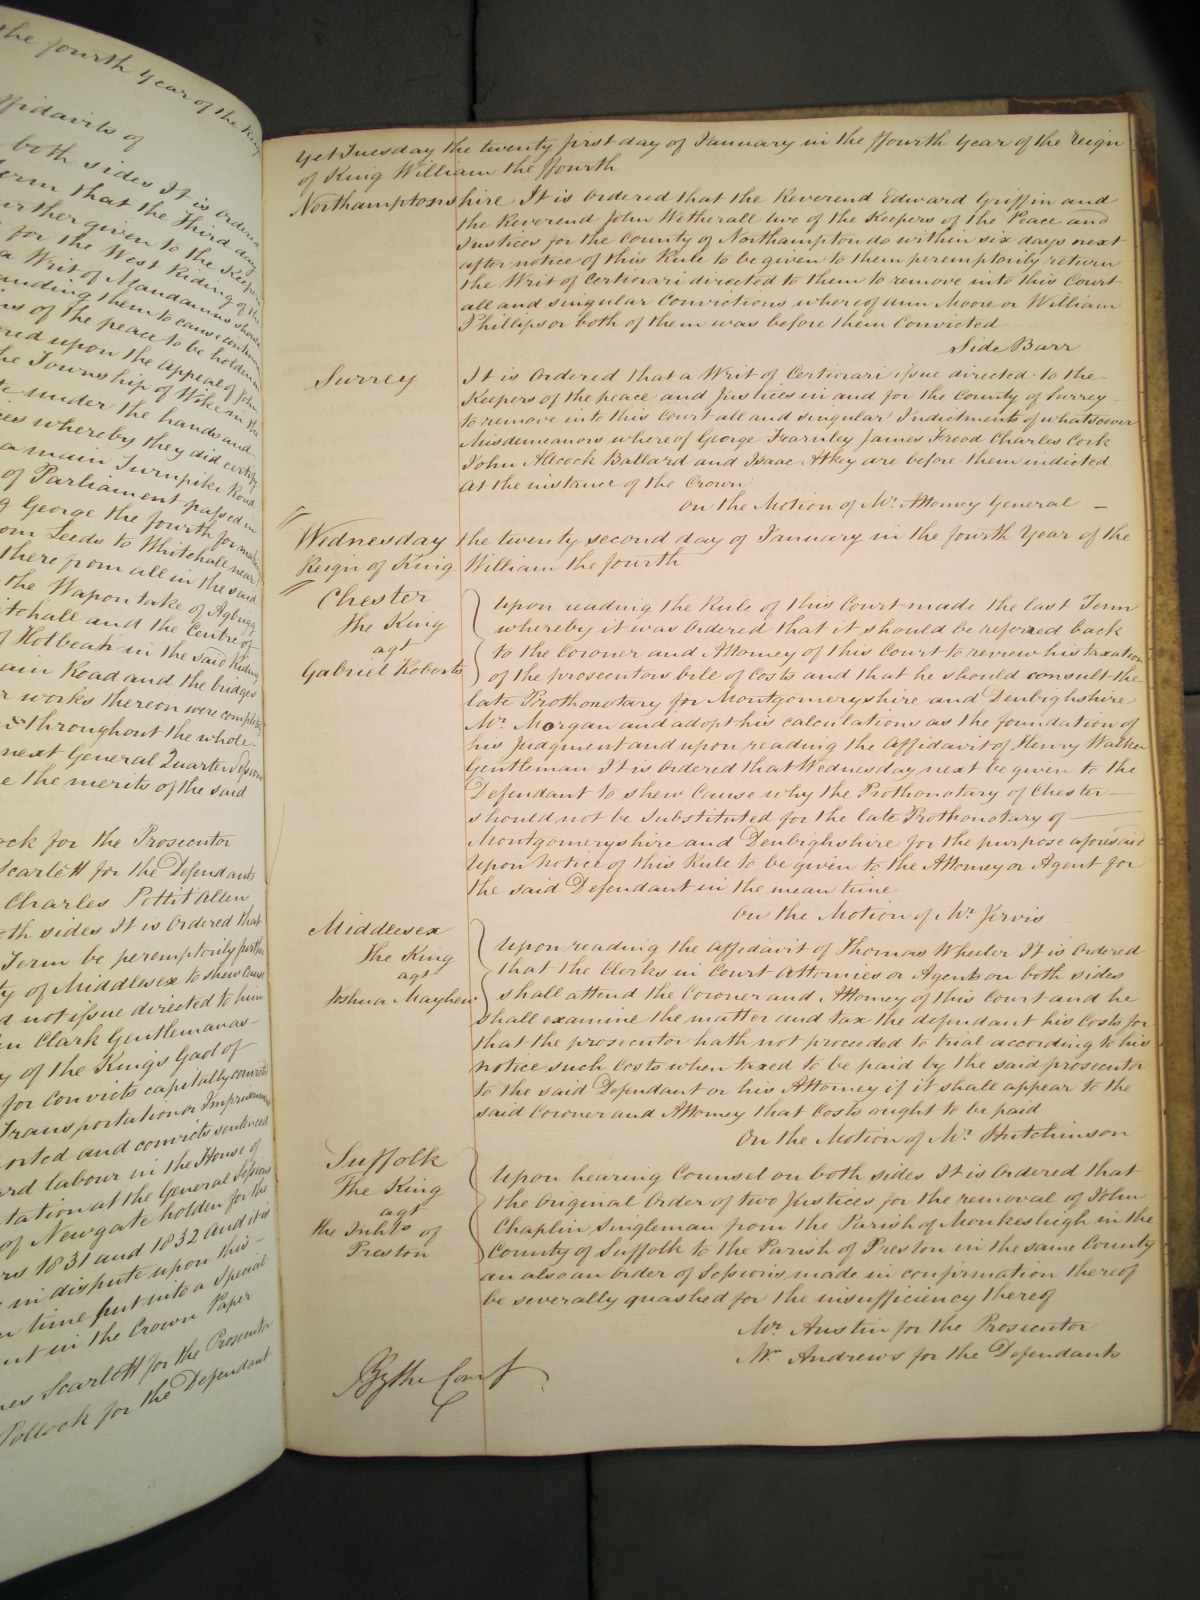 the fourth Year of the King
ffidavits of
both sides It is ordered
erm that the Third day
urther given to the Keepers
for the West Riding of the
a Writ of Mandamus should
anding them to cause continu
ns of the peace to be holden in
red upon the appeal of John
he Township of Wike in the
te under the hands and
ces whereby they did certify
a main Turnpike Road
of Parliament passed in
g George the fourth for making
om Leeds to Whitehall near
there from all in the said
the Wapontake of Agbrigg
itehall and the Centre of
of Holbeck in the said Riding
am Road and the bridges
r works thereon were completed
throughout the whole
next General Quarter Sessions
e the merits of the said
ock for the Prosecutor
Scarlett for the Defendants
Charles Pettit Allen
oth sides It is Ordered that
Term be peremptorily further
ty of Middlesex to shew Cause
d not issue directed to him
en Clark Gentleman as
y of the Kings Gaol of
for Convicts capitally convicted
Transportation or Imprisonment
orted and convicts sentenced
ard labour in the House of
tation at the General Sessions
of Newgate holden for the
rs 1831 and 1832 and it is
in dispute upon this
n time put into a Special
ut in the Crown Paper
mes Scarlett for the Prosecutor
Pollock for the Defendant
Yet Tuesday the twenty first day of January in the ffourth Year of the Reign
of King William the ffourth
Northamptonshire It is ordered that the Reverend Edward Griffin and
the Reverend John Wetherall two of the Keepers of the Peace and
Justices for the County of Northampton do within six days next
after notice of this Rule to be given to them peremptorily return
the Writ of Certiorari directed to them to remove into this Court
all and singular Convictions whereof Ann Moore or William
Phillips or both of them was before them Convicted
Side Barr
Surrey
It is Ordered that a Writ of Certiorari issue directed to the
Keepers of the peace and Justices in and for the County of Surrey
to remove into this Court all and singular Indictments of whatsoever
Misdemeanors whereof George Fearnley James Frood Charles Cork
John Alcock Ballard and Isaac Atkey are before them indicted
At the instance of the Crown
On the Motion of Mr. Attorney General
Wednesday the twenty second day of January in the fourth Year of the
Reign of King William the fourth
Chester
The King
agt
Gabriel Roberts
Upon reading the Rule of this Court made the last Term
whereby it was Ordered that it should be referred back
to the Coroner and Attorney of this Court to review his taxation
of the prosecutors bill of Costs and that he should consult the
late Prothonotary for Montgomeryshire and Denbighshire
Mr. Morgan and adopt his calculations as the foundation of
his Judgment and upon reading the Affidavit of Henry Walker
Gentleman It is Ordered that Wednesday next be given to the
Defendant to shew Cause why the Prothonotary of Chester
should not be substituted for the late Prothonotary of
Montgomeryshire and Denbighshire for the purpose aforesaid
Upon Notice of this Rule to be given to the Attorney or Agent for
the said Defendant in the mean time
On the Motion of Mr. Jervis
Middlesex
The King
agt
Joshua Mayhew
Upon reading the affidavit of Thomas Wheeler It is Ordered
that the Clerks in Court Attornies or Agents on both sides
shall attend the Coroner and Attorney of this Court and he
shall examine the matter and tax the defendant his Costs for
that the prosecutor hath not proceeded to trial according to his
notice such Costs when taxed to be paid by the said prosecutor
to the said Defendant or his Attorney if it shall appear to the
said Coroner and Attorney that Costs ought to be paid
On the Motion of Mr. Hutchinson
Suffolk
The King
agt
the Inhts of
Preston
Upon hearing Counsel on both sides It is Ordered that
the Original Order of two Justices for the removal of John
Chaplin Singleman from the Parish of Monkesleigh in the
County of Suffolk to the Parish of Preston in the same County
an also an Order of Sessions made in confirmation thereof
be severally quashed for the insufficiency thereof
Mr. Austin for the Prosecutor
Mr. Andrews for the Defendants
By the Court